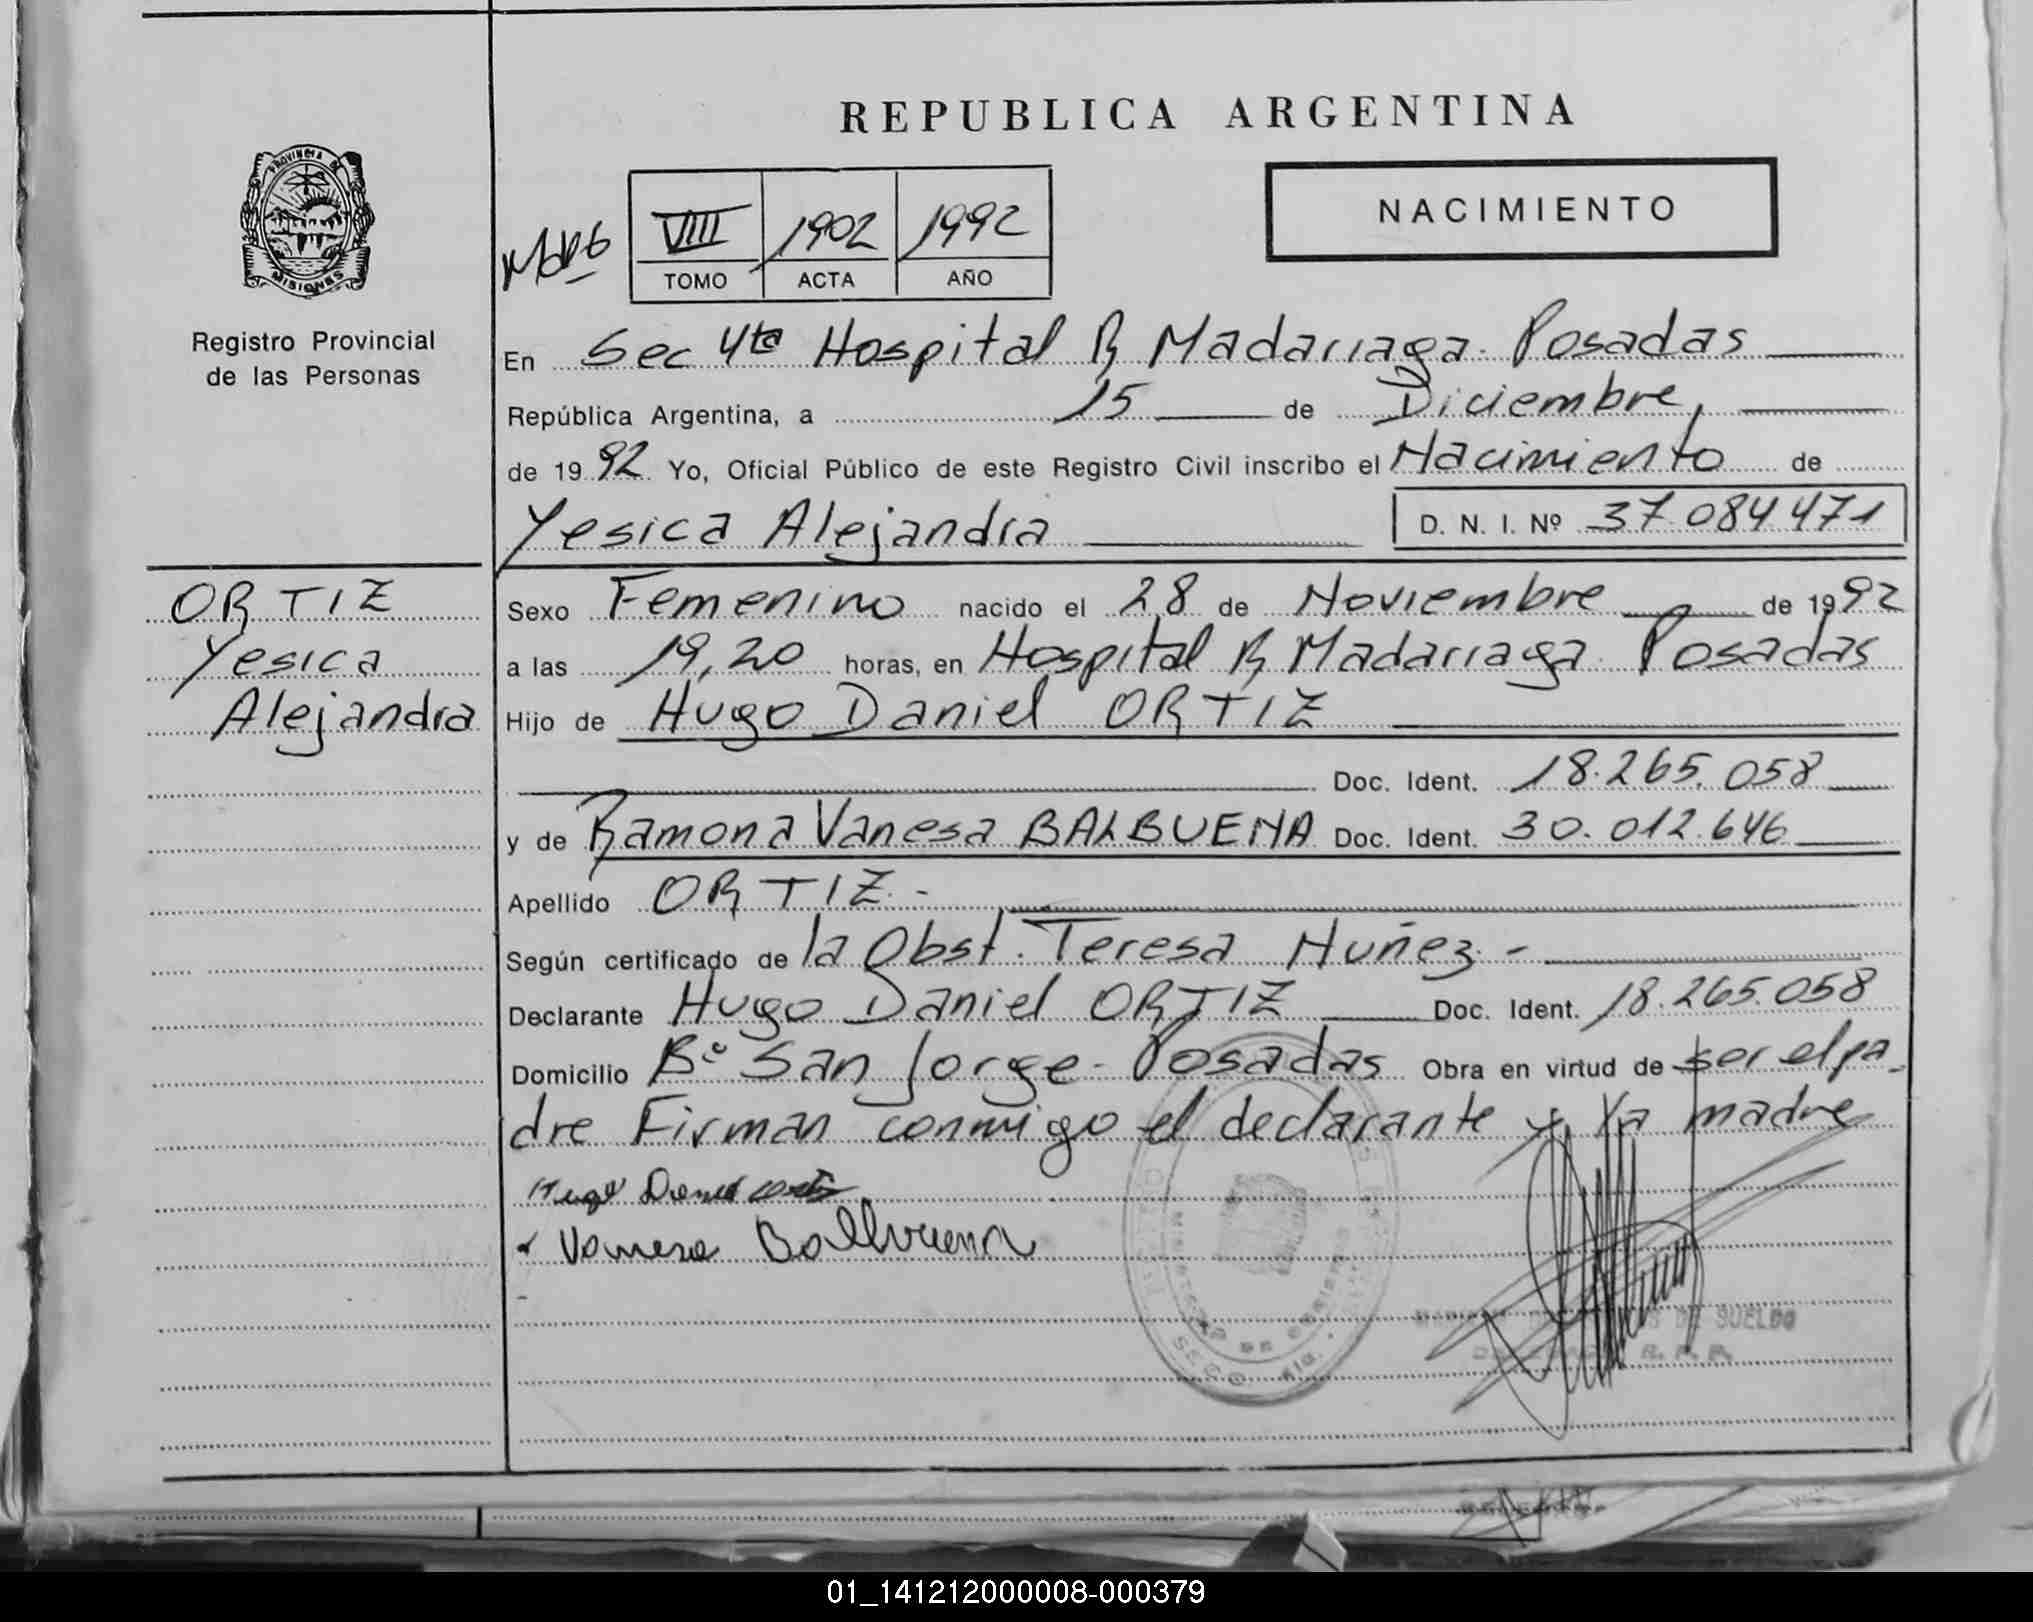 REPUBLICA ARGENTINA
NACIMIENTO
PROVINCIA DE
MISIONES
VIII 1902 1992
TOMO ACTA AÑO
Registro Provincial
de las Personas
En Sec 4ta Hospital R Madariaga. Posadas
República Argentina, a 15 de Diciembre,
de 1992 Yo, Oficial Público de este Registro Civil inscribo el Nacimiento de
Yesica Alejandra D. N. I. Nº 37.084471
ORTIZ
Yesica
Alejandra
Sexo Femenino nacido el 28 de Noviembre de 1992
a las 19,20 horas, en Hospital R Madariaga Posadas
Hijo de Hugo Daniel ORTIZ
Doc. Ident. 18.265.058
y de Ramona Vanesa BALBUENA Doc. Ident. 30.012.646
Apellido ORTIZ.-
Según certificado de la Obst. Teresa Nuñez.-
Declarante Hugo Daniel ORTIZ Doc. Ident. 18.265.058
Domicilio Bº San Jorge- Posadas Obra en virtud de ser el pa-
dre Firman conmigo el declarante y la madre
Hugo Daniel
Vanesa Balbuena
DE SUELDO
R. P. P.
01_141212000008-000379